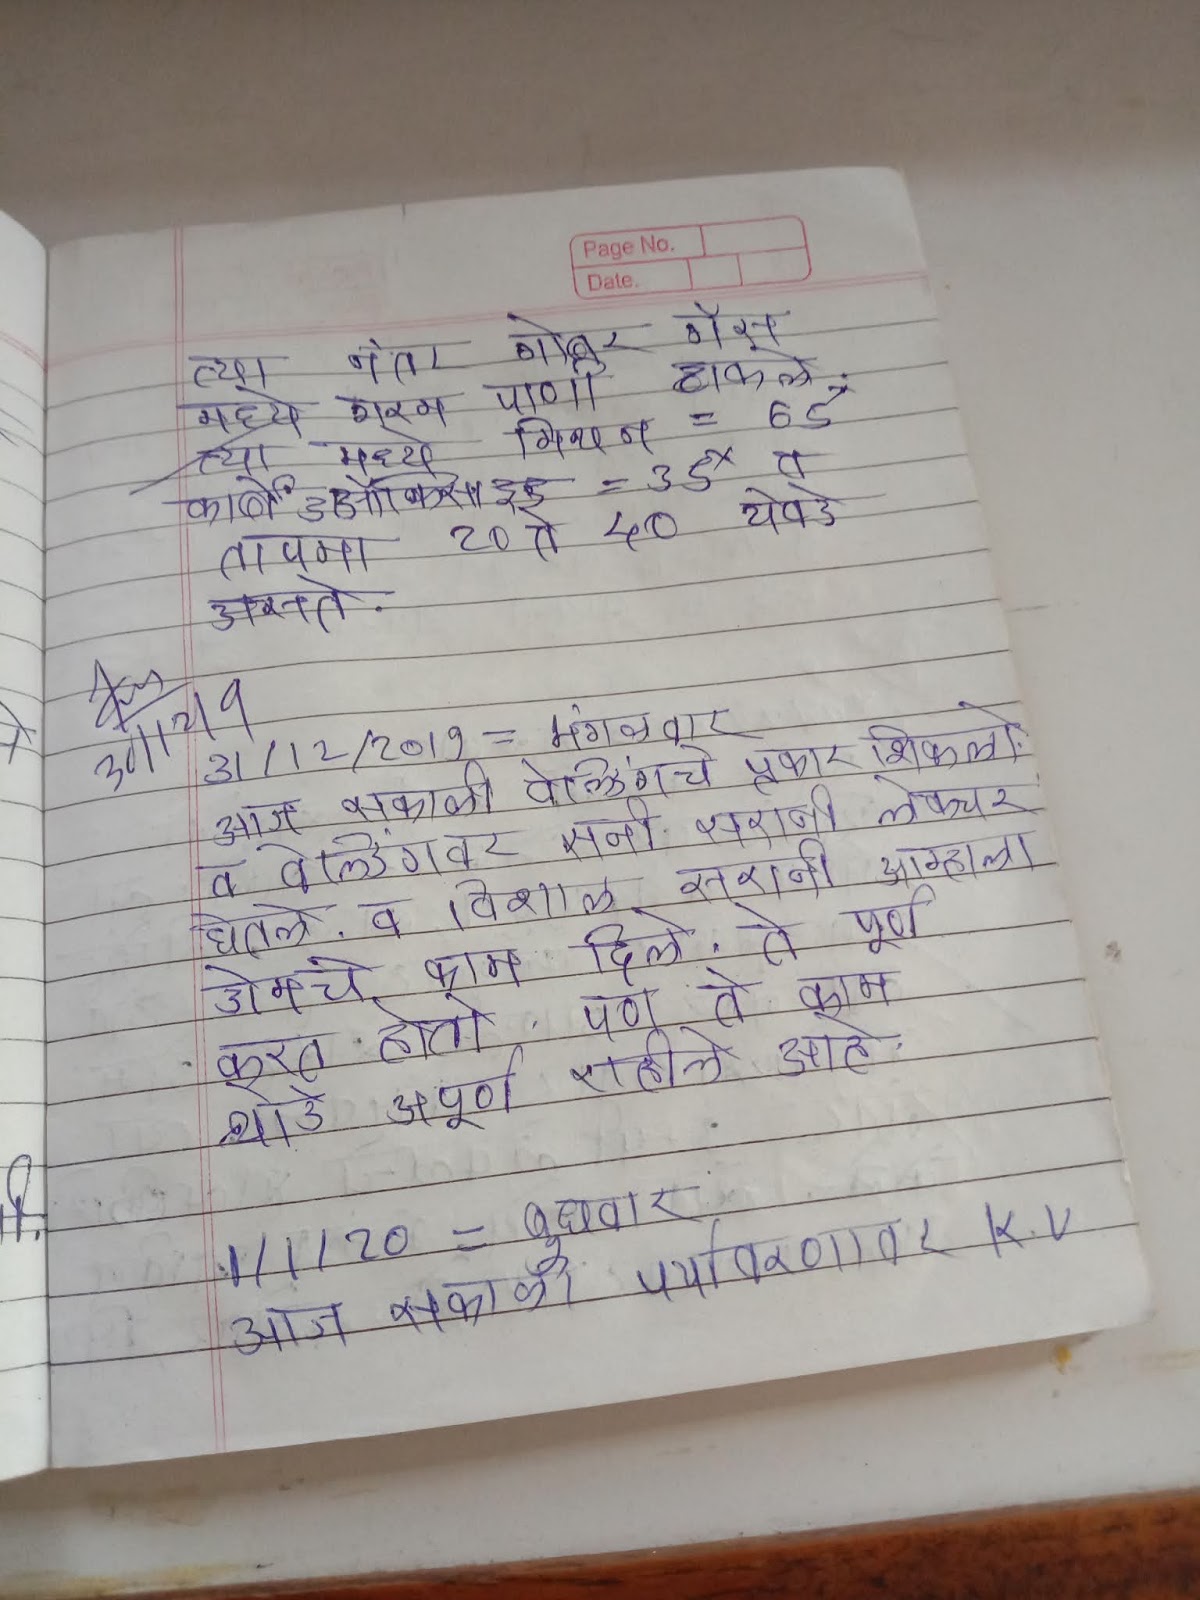 Page No.
Date.
त्या नंतर गोबर गॅस
मध्ये गरम पाणी टाकले.
त्या मध्ये मिथन = 65%
कार्बन डाऑक्साइड = 35% व
तापमा 20 ते 40 येवढे
असते.
30/12/19
31/12/2019 = मंगळवार
आज सकाळी वेल्डिंगचे प्रकार शिकलो.
व वेल्डिंगवर सनी सरांनी लेक्चर
घेतले. व विशाल सरांनी आम्हाला
डोमचे काम दिले. ते पूर्ण
करत होतो. पण ते काम
थोडे अपूर्ण राहीले आहे.
1/1/20 = बुधवार
आज सकाळी पर्यावरणावर K.V